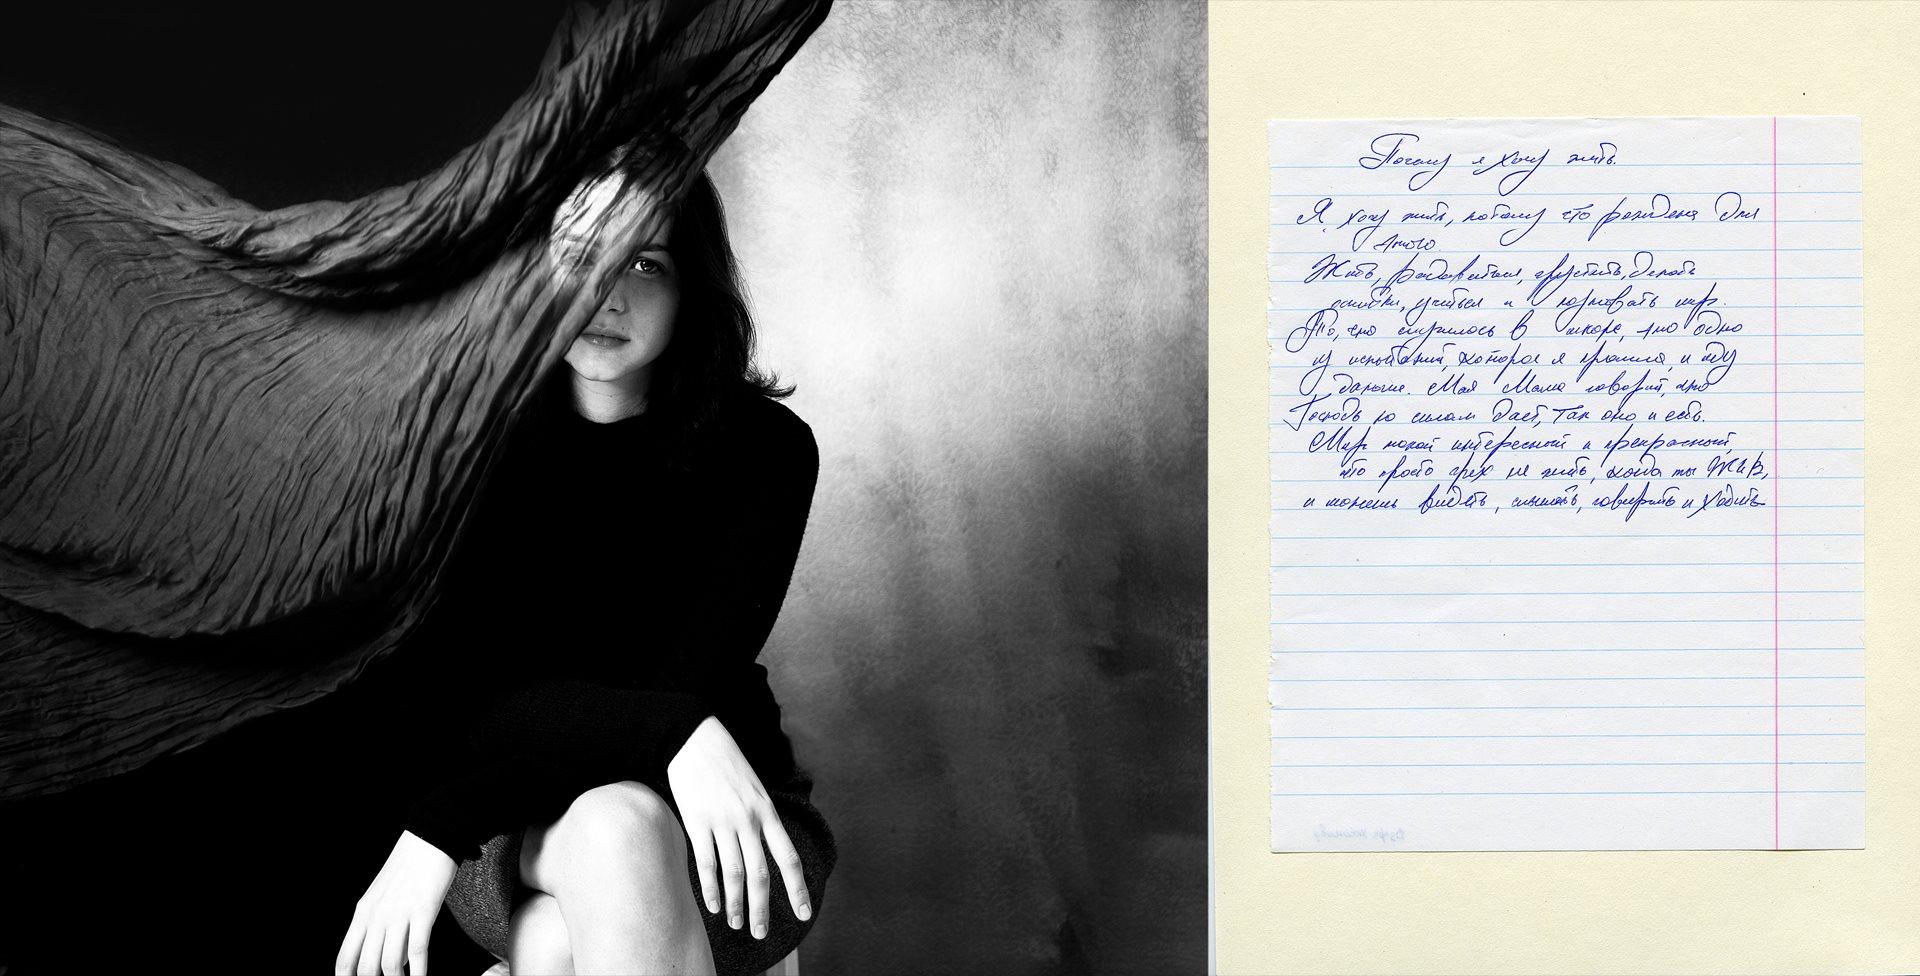 Почему я хочу жить.
Я хочу жить, потому что рождена для
этого.
Жить, радоваться, грустить, делать
ошибки, учиться и познавать мир.
То, что случилось в школе, это одно
из испытаний, которое я прошла, и иду
дальше. Моя Мама говорит, что
Господь по силам даёт, так оно и есть.
Мир такой интересный и прекрасный,
что просто грех не жить, когда ты ЖИВ,
и можешь видеть, слышать, говорить и ходить